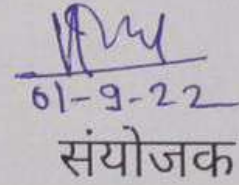 01-9-22
संयोजक